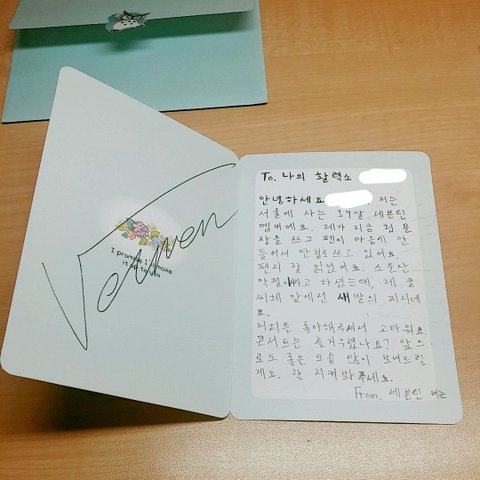 Vernon
I promise I'll make
it up to you
To. 나의 활력소
안녕하세요 저는
서울에 사는 19살 세븐틴
멤버에요. 제가 지금 첫 문
장을 쓰고 펜이 마음에 안
들어서 단걸로 쓰고 있어요.
편지 잘 읽었어요. 소문난
악필이라고 하셨는데, 제 글
씨체 앞에선 새발의 피시네
요.
저희를 좋아해주셔서 고마워요.
콘서트는 즐거우셨나요? 앞으
로도 좋은 모습 많이 보여드릴
게요. 잘 지켜봐주세요.
From. 세븐틴 버논